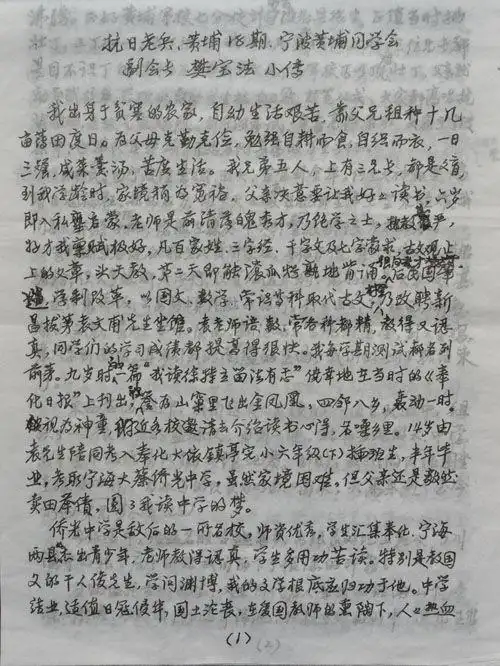 抗日老兵、黄埔18期、宁波黄埔同学会
副会长 樊宝法 小传
我出身于贫寒的农家，自幼生活艰苦，靠父兄租种十几
亩薄田度日。在父母克勤克俭，勉强自耕而食，自织而衣，一日
三餐，咸菜羹汤，苦度生活。我兄弟五人，上有三兄长，都是文盲，
到我学龄时，家境稍为宽裕，父亲决意要让我好好读书，六岁
即入私塾启蒙，老师是前清落自秀才，乃绝学之士，教教严严，
好才我禀赋极好，凡百家姓、三字经、千字文及七字蒙求，古文观止
上的文章，头天教，第二天即能滚瓜烂熟地背诵，后民国
学制改革，以国文、数学、常识等科取代古文，乃改聘新
昌拔第袁文甫先生坐馆。袁老师语、数、常各科都精，教得又认
真，同学们的学习成绩都提高得很快。我每学期测试都名列
前茅。九岁时的一篇“我读徐特立留法有志”侥幸地在当时的《奉
化日报》上刊出，登有山窠里飞出金凤凰，四邻八乡，轰动一时。
被视为神童，附近各校邀请去介绍读书心得，名噪乡里。14岁由
袁先生陪同考入奉化大依镇亭完小六年级(下)插班生，半年毕
业，考取宁海大蔡侨光中学，虽然家境困难，但父亲还是毅然
卖田举债，圆了我读中学的梦。
侨光中学是敌后的一所名校，师资优秀，学生汇集奉化、宁海
两县杰出青少年，老师教得认真，学生多用功苦读。特别是教国
文的干人俊先生，学问渊博，我的文学根底应归功于他。中学
结业，适值日寇侵华，国土沦丧，在爱国教师的熏陶下，人人热血
(1)